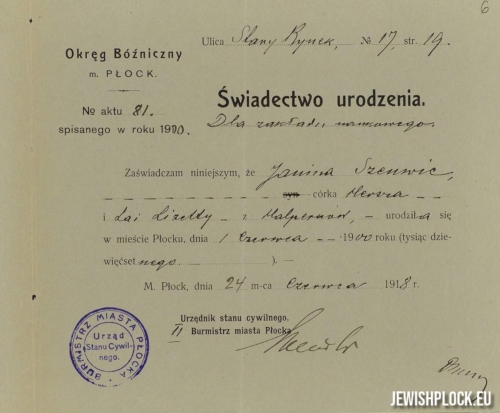 6
Ulica Stary Rynek, № 17, str. 19.
Okręg Bóżniczny
m. PŁOCK.
№ aktu 81.
spisanego w roku 1900.
Świadectwo urodzenia.
Dla zakładu naukowego.
Zaświadczam niniejszym, że Janina Szenwic,
syn córka Hersza
i Lai Lizetty - z Halpernów, - urodziła się
w mieście Płocku, dnia 1 Czerwca - - 1900 roku (tysiąc dzie-
więćsetnego. ).—
M. Płock, dnia 24 m-ca Czerwca 1918 r.
Urzędnik stanu cywilnego.
II Burmistrz miasta Płocka
BURMISTRZ MIASTA PŁOCKA
Urząd
Stanu Cywil-
nego.
JEWISHPLOCK.EU